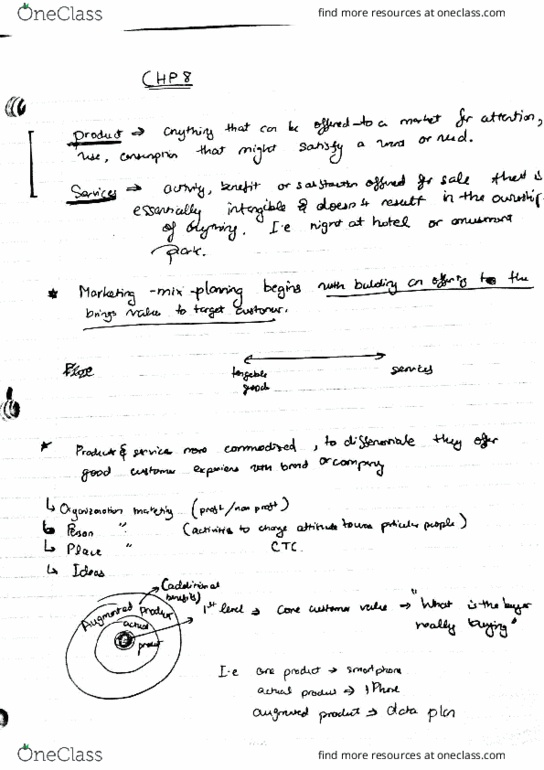 OneClass find more resources at oneclass.com
CHP 8
Product → anything that can be offered to a market for attention,
use, consumption that might satisfy a want or need.
Services → activity, benefit or satisfaction offered for sale that is
essentially intangible & doesn't result in the ownership
of anything. I.e night at hotel or amusement
park.
* Marketing-mix-planning begins with building an offering to the
brings value to target customer.
tangable services
goods
* Product & service more commodized, to differentiate they offer
good customer experiens with brand or company
↳ Organization marketing (profit/non profit)
↳ Person " (activities to change attitude towards particular people)
↳ Place " CTC.
↳ Ideas
(additional
benefits)
Augmented product
actual
product
1st level → core customer value → "What is the buyer
really buying"
I.e core product → smartphone
actual product → iPhone
augmented product → data plan
OneClass find more resources at oneclass.com